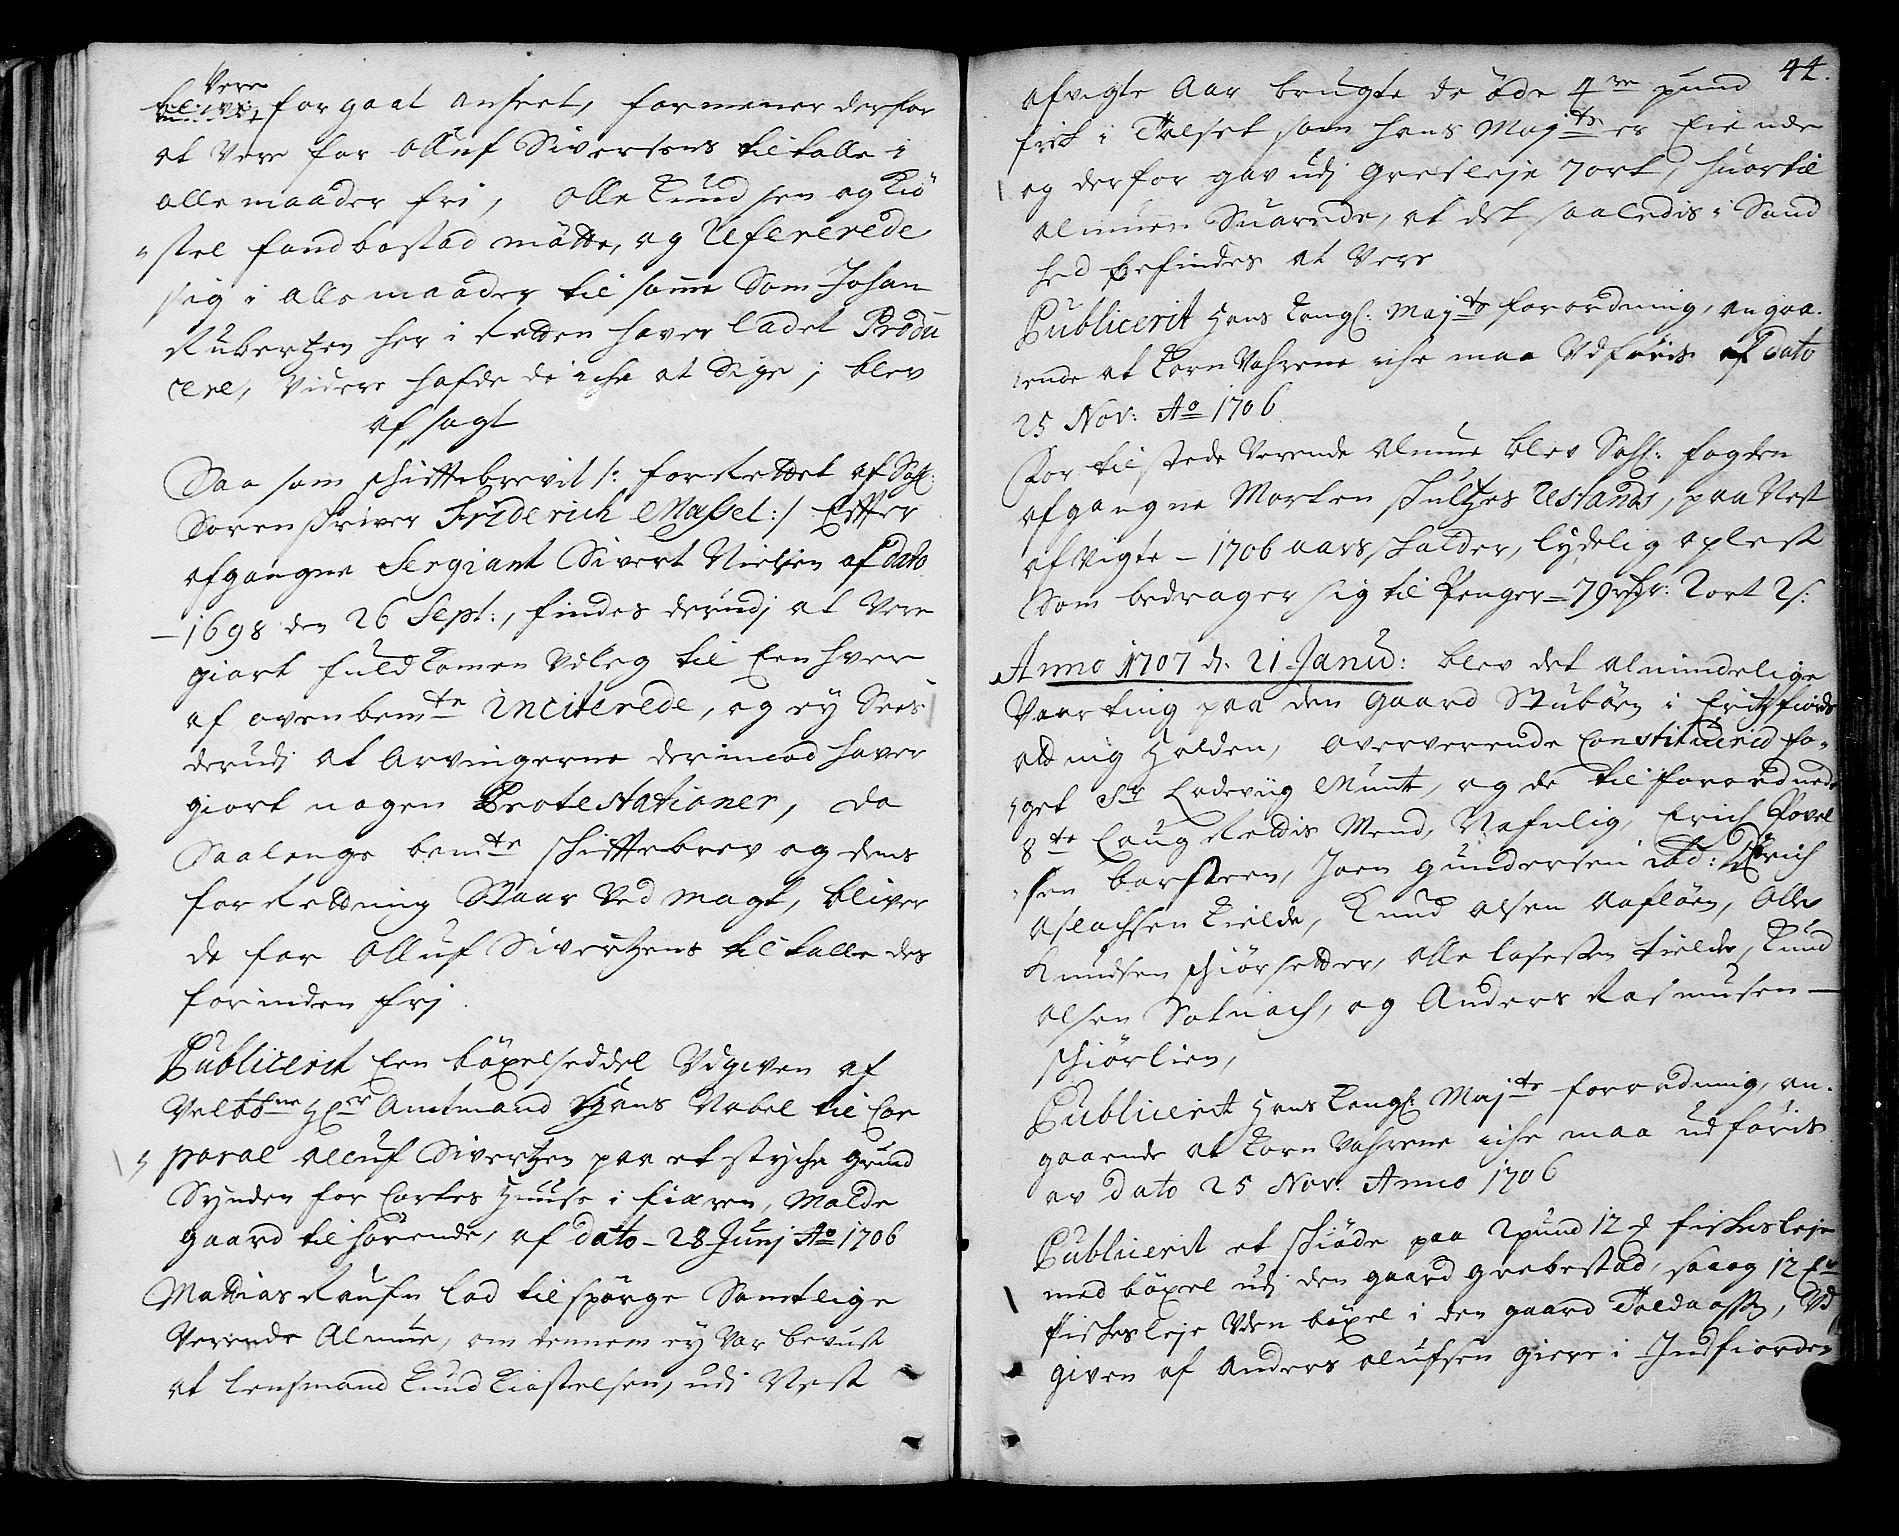 Vere
forgaat anseet, formener derfor
at Vere for Olluf Siversens tiltalle i
alle maader fri, Olle Knudsen og Kiø
stel fandbostad møtte, og Refererede
sig i alle maader til samme Som Johan
Rubertzen her i Retten haver ladet Produ
cere, Videre hafde de iche at Sige; blev
afsagt
Saa som schifttebrevit /: forRettet af Sahl.
Sorenschriver Friderich Massel :/ Effter
afgangne Sergiant Sivert Nielsen af dato
1698 den 26 Sept:, findes derudj at Vere
giort fuldkomen Vdleg til Een hver
af ovenbemte inciterede, og ey Sees
derudj at Arvingerne derimod haver
giort nogen Protestationer, da
Saalenge bemte schifttebrev og dens
forRettning Staar Ved magt, bliver
de for Olluf Sivertzens tiltalle des
forinden frj.
Publicerit Een bøxelseddel Vdgiven af
Velbne Hr Amtmand Hans Nobel til Cor
poral olluf Sivertzen paa et styche grund
Synden for Corkes Huuse i fixeren, Molde
gaard tilhørende, af dato 28 Junj Ao 1706
Mattias Raufn lod tilspørge Samtlige
Verende Almue, om dennem ey Var bevust
at Lensmand Knud Kiøstelsen, udi Nest
44.
afvigte Aar brugte de øde 4re pund
frit i Tolset som hans Mayts er Eiende
og derfor gav udj gresleje 7ort, huortil
almuen Suarede, at det saaledis i Sand
hed befindes at Vere
Publicerit Hans Kongl: Mayts forordning, angaa
ende at Korn Vahrene iche maa Vdføris af Dato
25 Nov: Ao 1706
For tilstede Verende Almue blev Sahl: fogden
afgangne Morten schultzes Restands, paa Nest
afvigte 1706 aars schalder, lydelig oplest
Som bedrager sig til Penger 79 rdr: 2ort 2s:
Anno 1707 d. 21 Janu: blev det almindelige
Vaarting paa den gaard Stubøen i Eritzfiords
otting Holden, Ververende Constituerid fo
get Sr Lodeviig Munt, og de tilforordnede
8te Laug Rettis Mend, Nafnlig, Erich Povel
sen barsteen, Joen gundersen ibd: Erich
Aslachsen Kielde, Knud olsen Aafløen, Olle
Knudsen schiørsetter, olle lasessen kielde, Knud
olsen Solniach, og Anders Rasmusen
schiørlien,
Publicerit Hans Kongl: Mayts forordning, an
gaaende at Korn Vahrene iche maa udføris
av dato 25 Nov: Anno 1706
Publicerit et schiøde paa 2pund 12 fischesleje
med bøxel udj den gaard grebestad, saa og 12
fischesleje Vden bøxel i den gaard Toldaassen, Vd
given af Anders olufsen giere i Indfiorden